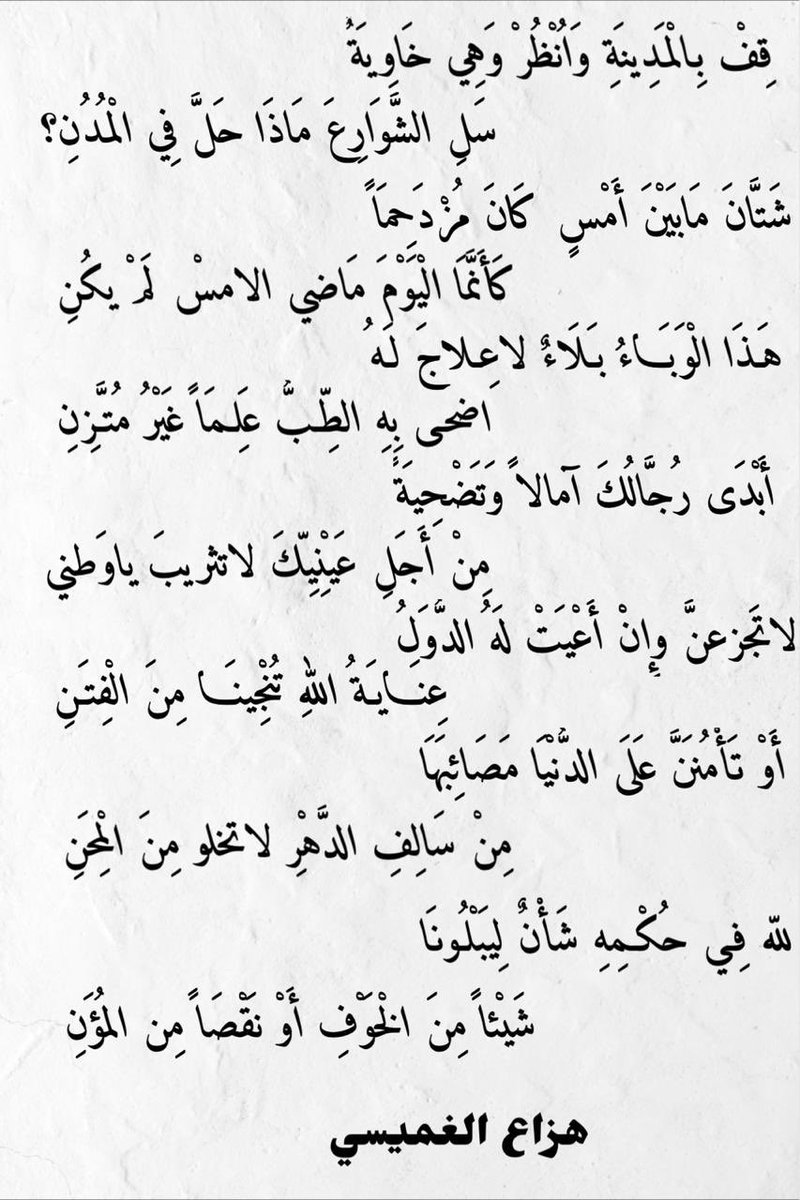 قِفْ بِالْمَدِينَةِ وَاُنْظُرْ وَهِي خَاوِيَةٌ
سَلِ الشَّوَارِعَ مَاذَا حَلَّ فِي الْمُدُنِ؟
شَتَّانَ مَابَيْنَ أَمْسٍ كَانَ مُزْدَحمَاً
كَأَنَّمَا الْيَوْمَ مَاضي الامسْ لَمْ يكُنِ
هَذَا الْوَبَاءُ بَلَاءٌ لاعِلاجَ لَهُ
اضحى بِهِ الطِّبُّ عَلِمَاً غَيْرُ مُتَّزِنِ
أَبْدَى رُجَّالُكَ آمالاً وَتَضْحِيَةً
مِنْ أَجَلِ عَيَنِيّكَ لاتثريبَ ياوَطني
لاتَجزعنَّ وِإِنْ أَعْيَتْ لَهَُ الدَّوَلُ
عِنَايَةُ اللهِ تُنْجِينَا مِنَ الْفِتَنِ
أَوْ تَأْمُنَنَّ عَلَى الدُّنْيَا مَصَائِبَهَا
مِنْ سَالِفِ الدَّهْرِ لاتخلو مِنَ الْمِحَنِ
للّه فِي حُكْمِهِ شَأْنٌ لِيَبْلُونَا
شَيْئاً مِنَ الْخَوْفِ أَوْ نَقْصَاً مِن المْؤَنِ
هزاع الغميسي